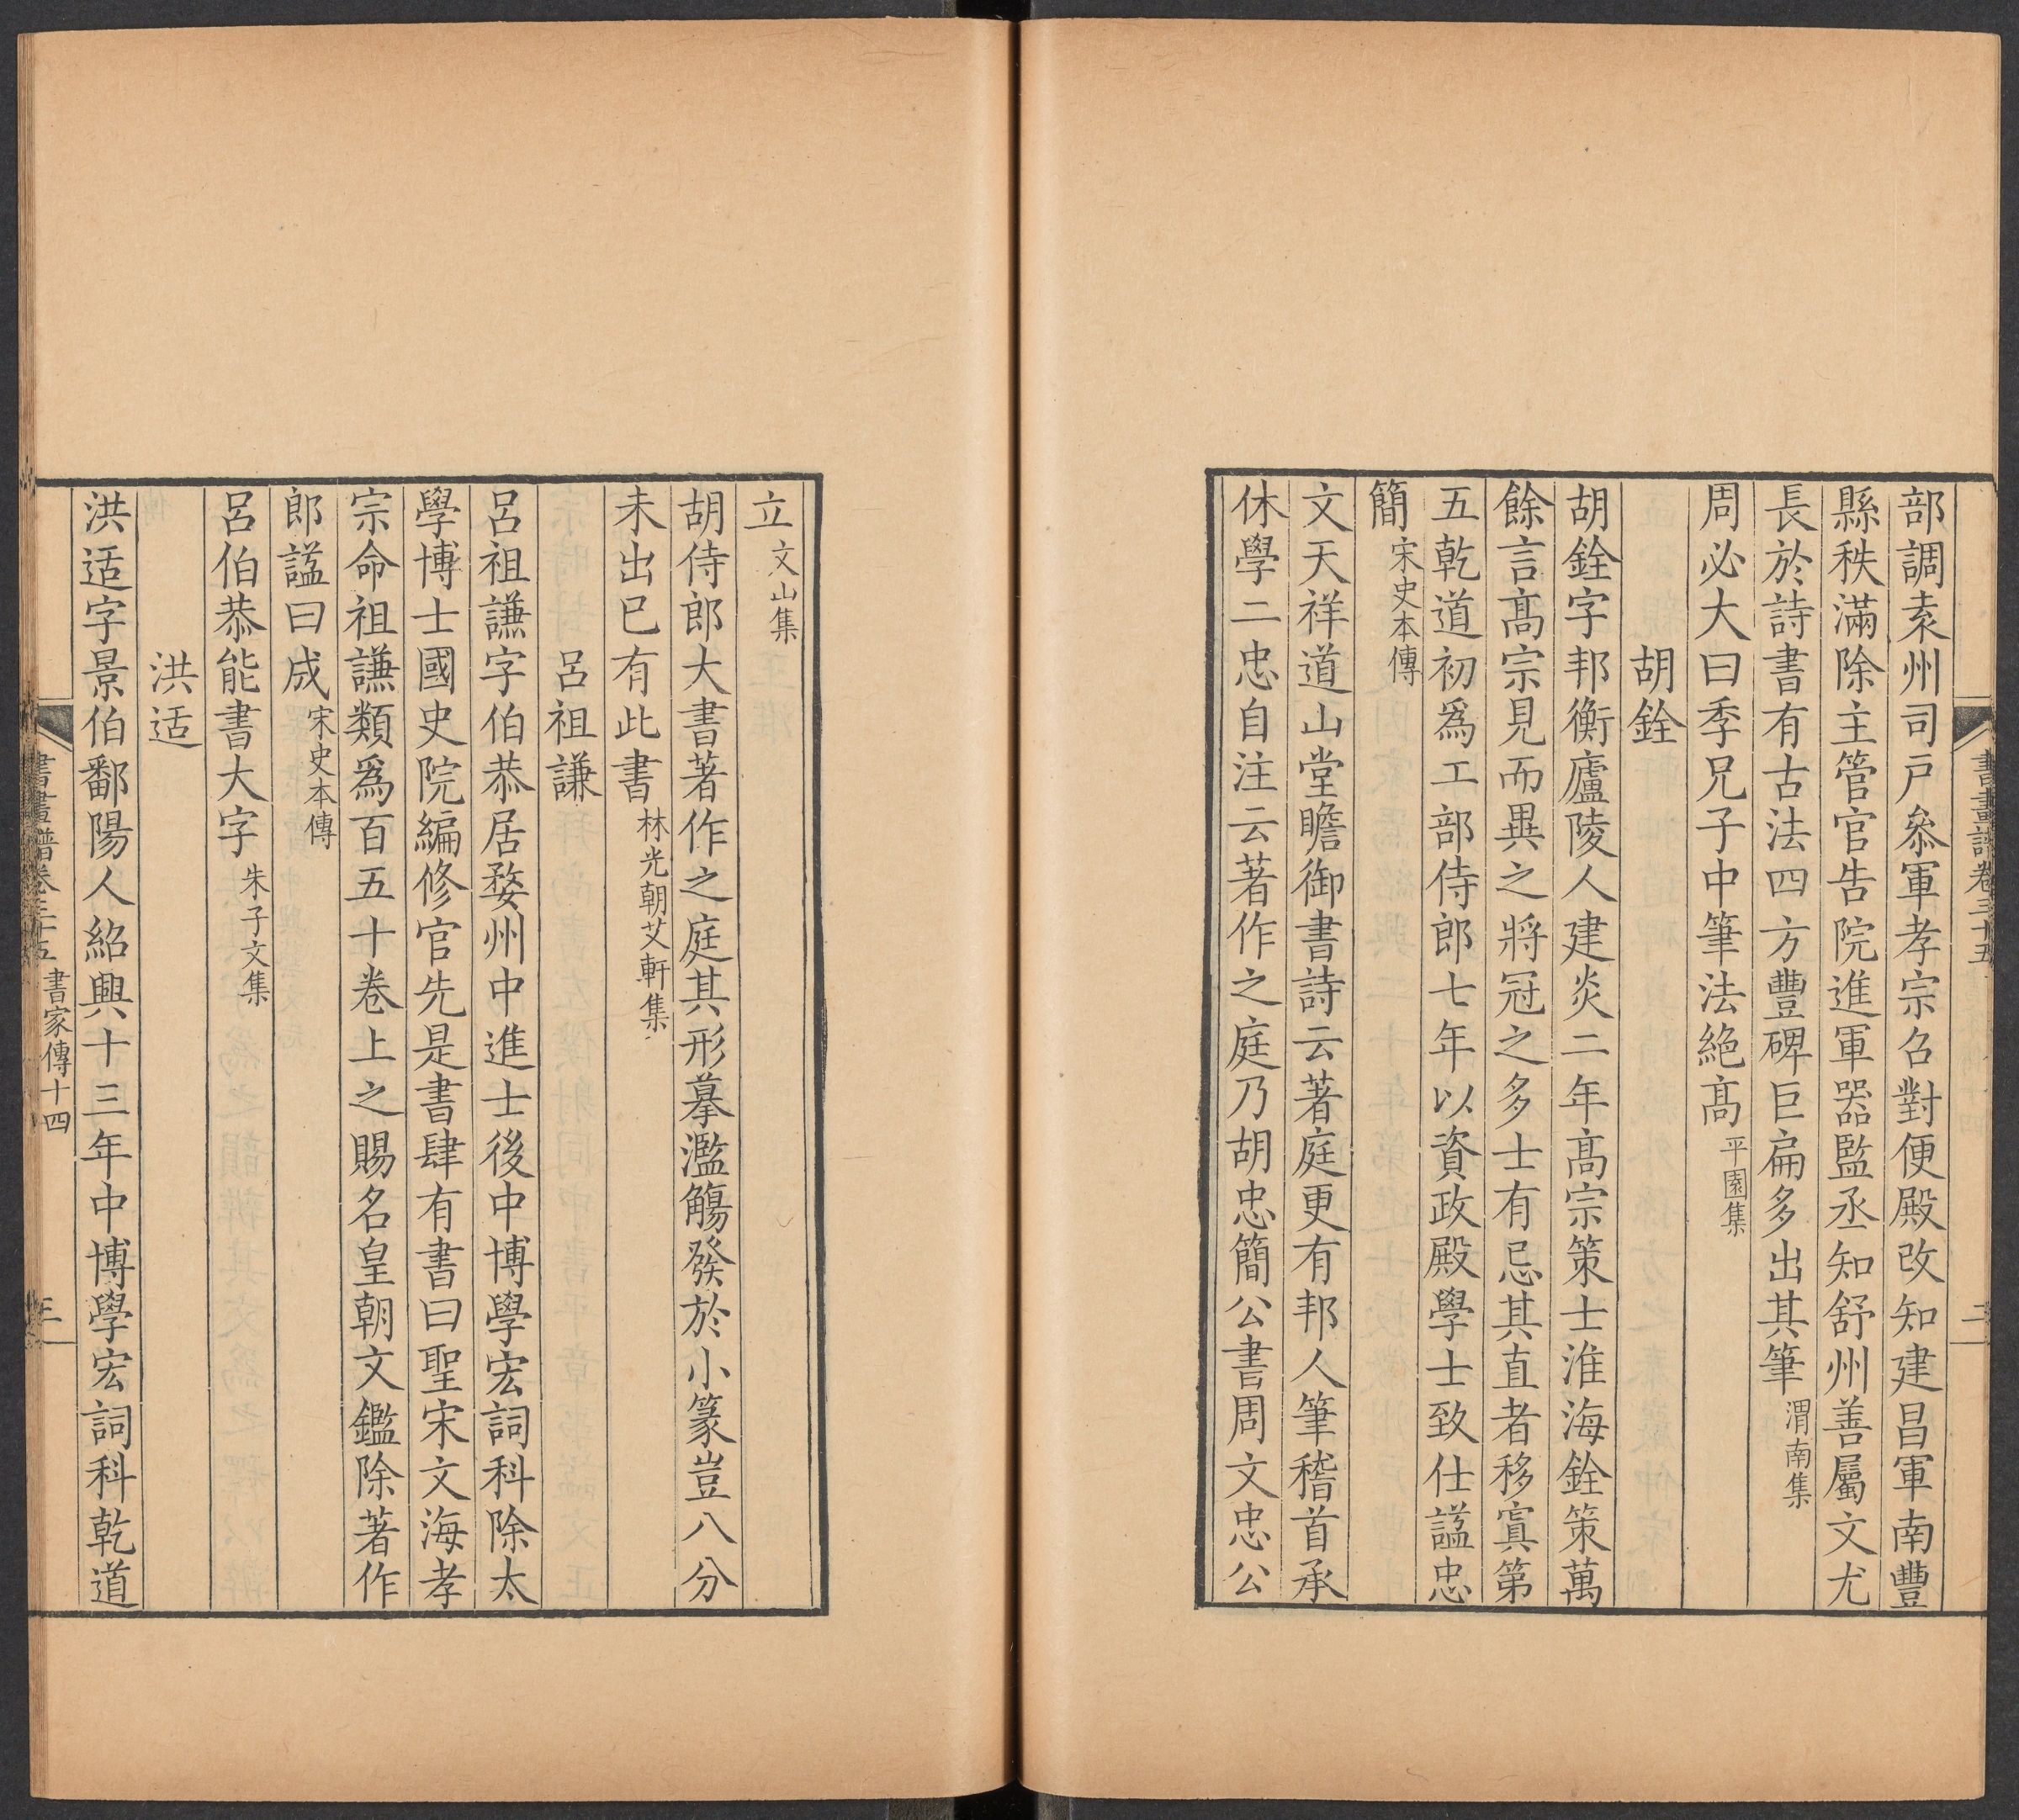 部調袁州司戶叅軍孝宗召對便殿改知建昌軍南豐
縣秩滿除主管官告院進軍器監丞知舒州善屬文尤
長於詩書有古法四方豐碑巨扁多出其筆渭南集
周必大曰季兄子中筆法絶髙平園集
胡銓
胡銓字邦衡廬陵人建炎二年髙宗策士淮海銓策萬
餘言髙宗見而異之將冠之多士有忌其直者移寘第
五乾道初爲工部侍郎七年以資政殿學士致仕諡忠
簡宋史本傳
文天祥道山堂瞻御書詩云著庭更有邦人筆稽首承
休學二忠自注云著作之庭乃胡忠簡公書周文忠公
書畫譜卷三十五 二
立文山集
胡侍郎大書著作之庭其形摹濫觴發於小篆豈八分
未出已有此書林光朝艾軒集
呂祖謙
呂祖謙字伯恭居婺州中進士後中博學宏詞科除太
學博士國史院編修官先是書肆有書曰聖宋文海孝
宗命祖謙類爲百五十卷上之賜名皇朝文鑑除著作
郎諡曰成宋史本傳
呂伯恭能書大字朱子文集
洪适
洪适字景伯鄱陽人紹興十三年中博學宏詞科乾道
書畫譜卷三十五 書家傳十四 三